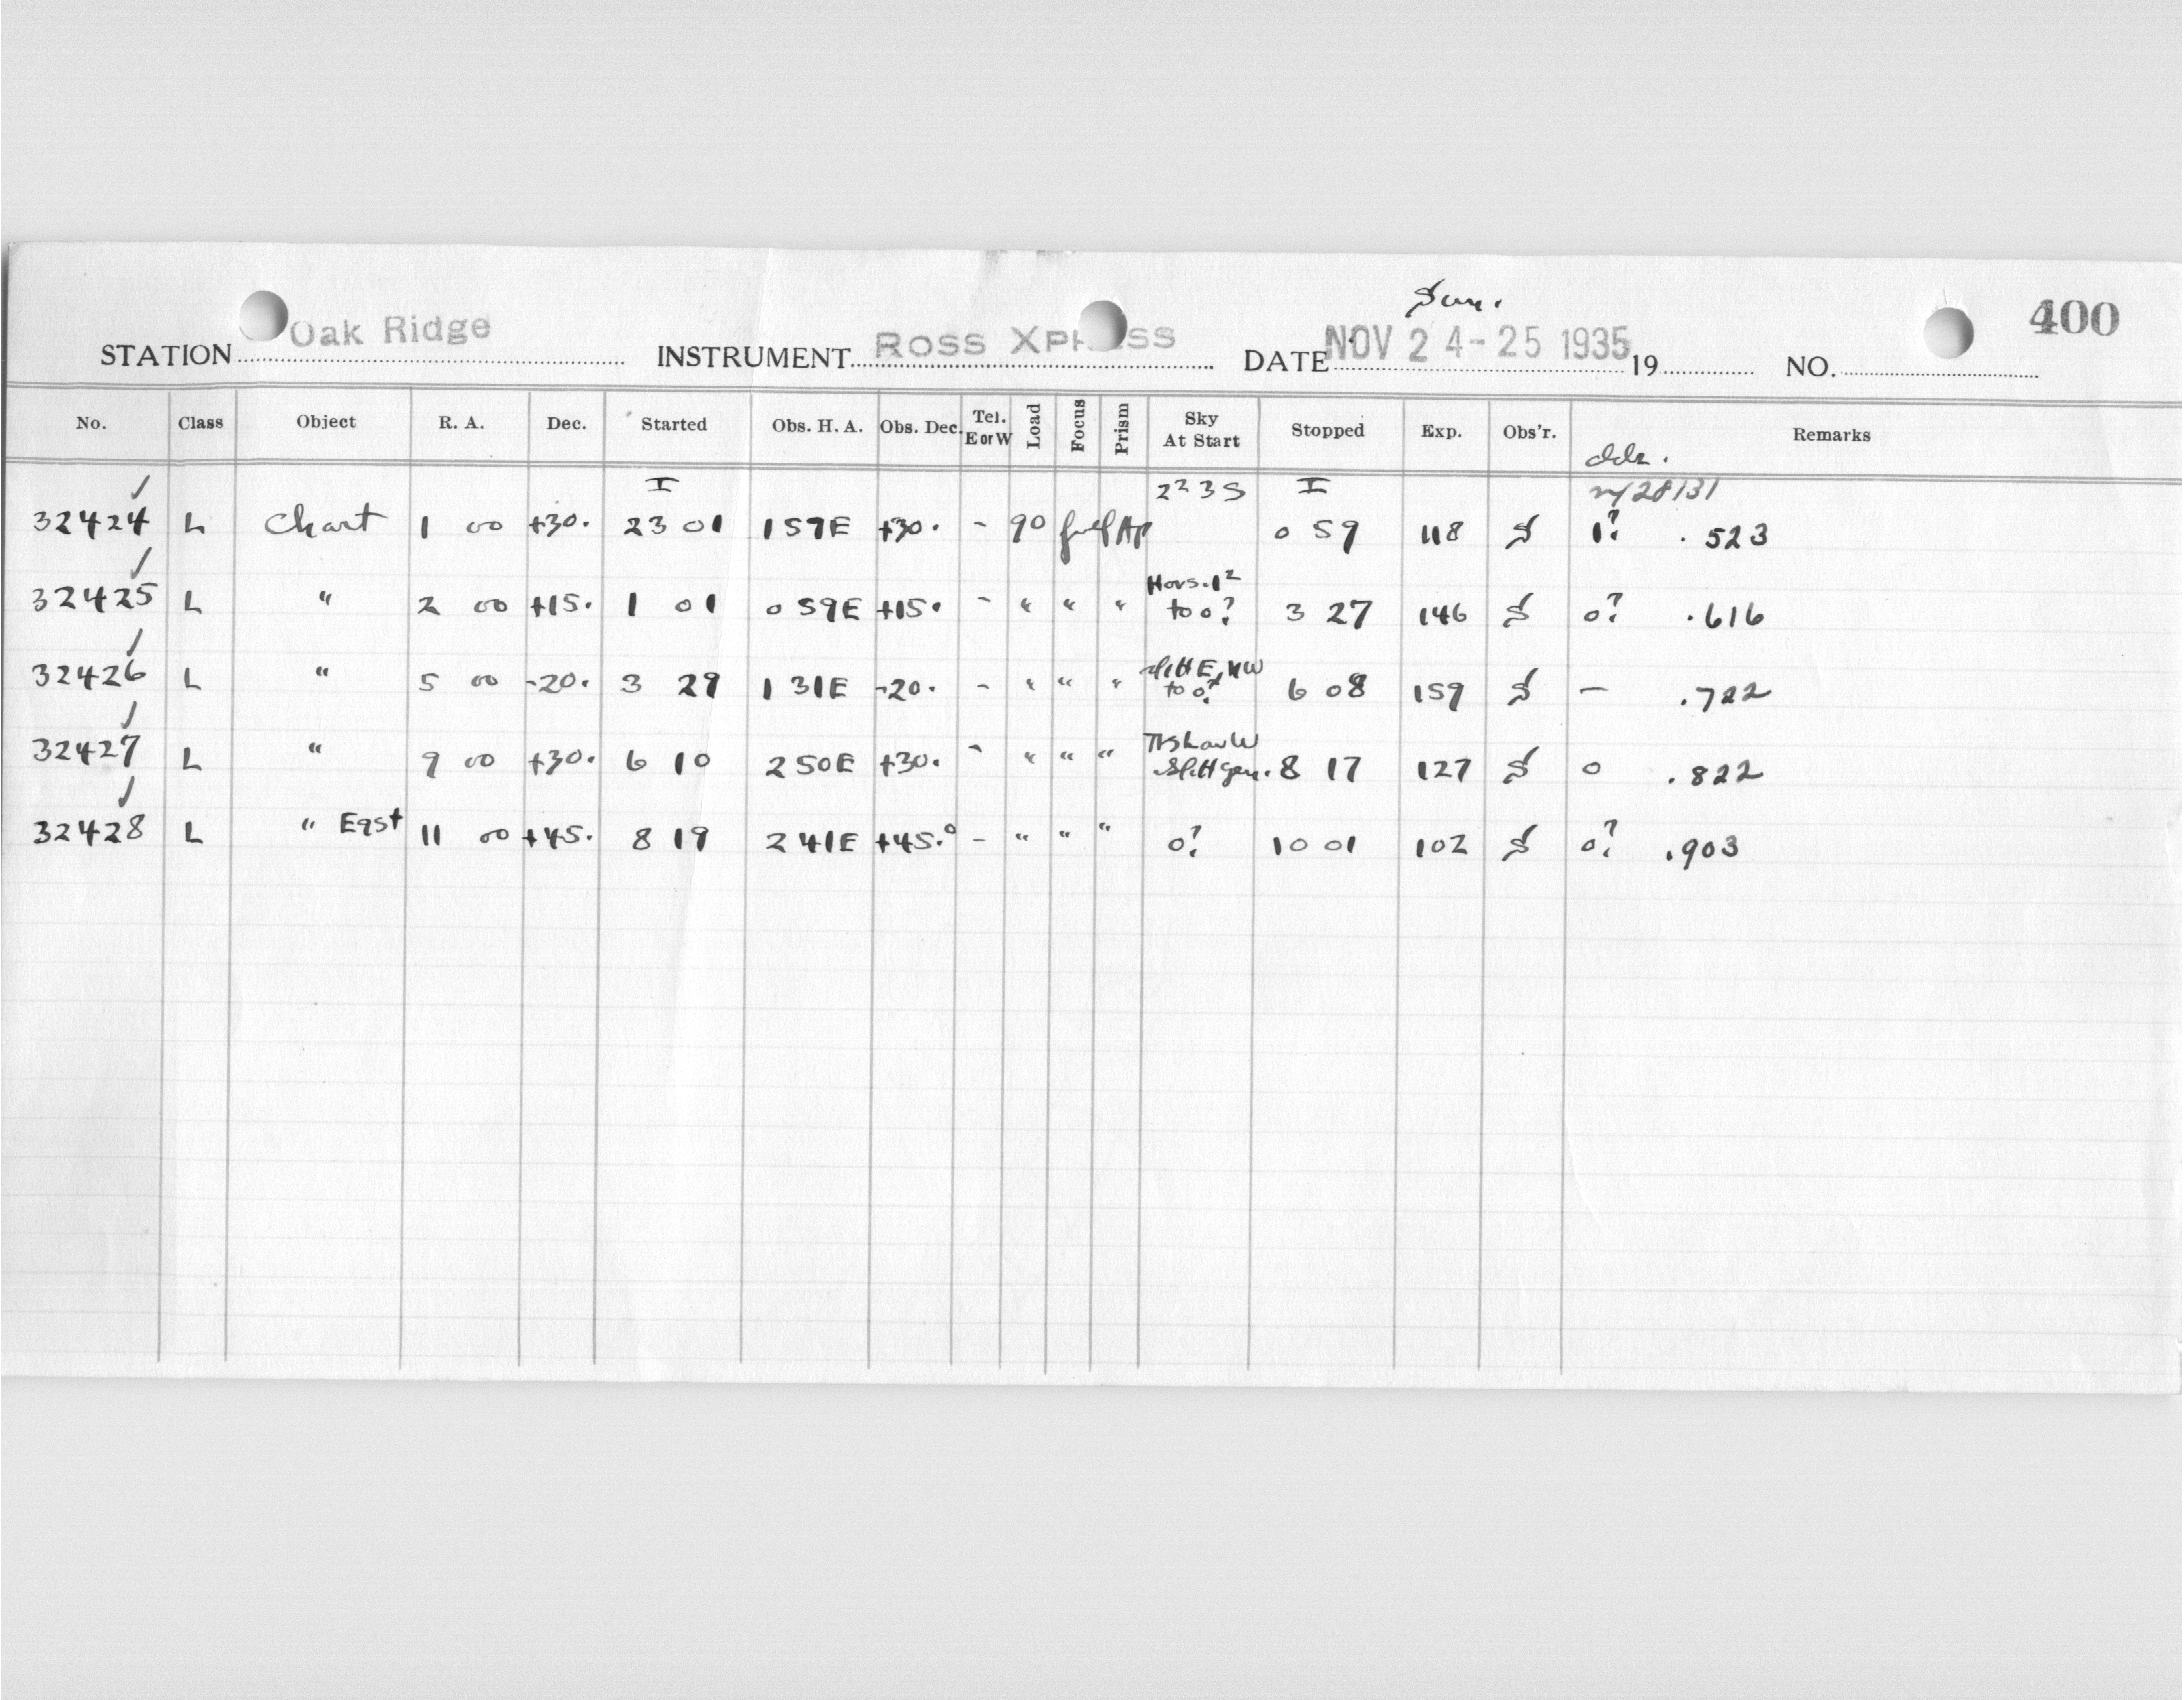 Sun.
400
STATION Oak Ridge INSTRUMENT ROSS XPRESS DATE NOV 24-25 1935 19 NO.
No. Class Object R. A. Dec. Started Obs. H. A. Obs. Dec. Tel. E or W Load Focus Prism Sky At Start Stopped Exp. Obs'r. Remarks
I 2² 3 S I 28131
32424 L Chart 1 00 +30. 23 01 1 59E +30. - 90 0 59 118 S 1? .523
Hors. 1²
32425 L " 2 00 +15. 1 01 0 59E +15. - " " " to 0? 3 27 146 S 0? .616
E, NW
32426 L " 5 00 -20. 3 29 1 31E -20. - " " " to 0? 6 08 159 S — .722
32427 L " 9 00 +30. 6 10 2 50E +30. - " " " 8 17 127 S 0 .822
32428 L " East 11 00 +45. 8 19 2 41E +45.° - " " " 0? 10 01 102 S 0? .903